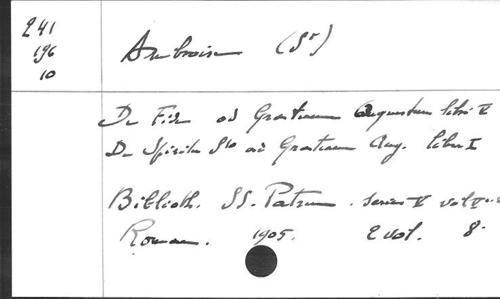 241
196
10
Ambroise (St)
De Fide ad Gratianum Augustum libri V
De Spiritu Sto ad Gratianum Aug. liber I
Biblioth. SS. Patrum. series V vol V
Romae. 1905. 2 vol. 8°